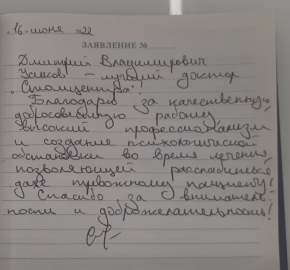 16. июня 22
ЗАЯВЛЕНИЕ №
Дмитрий Владимирович
– лучший доктор
"Стомцентра"!
Благодарю за качественную
добросовестную работу,
высокий профессионализм
и создание психологической
обстановки во время лечения,
позволяющей расслабиться
даже тревожному пациенту!
Спасибо за внимательн
ности и доброжелательность!